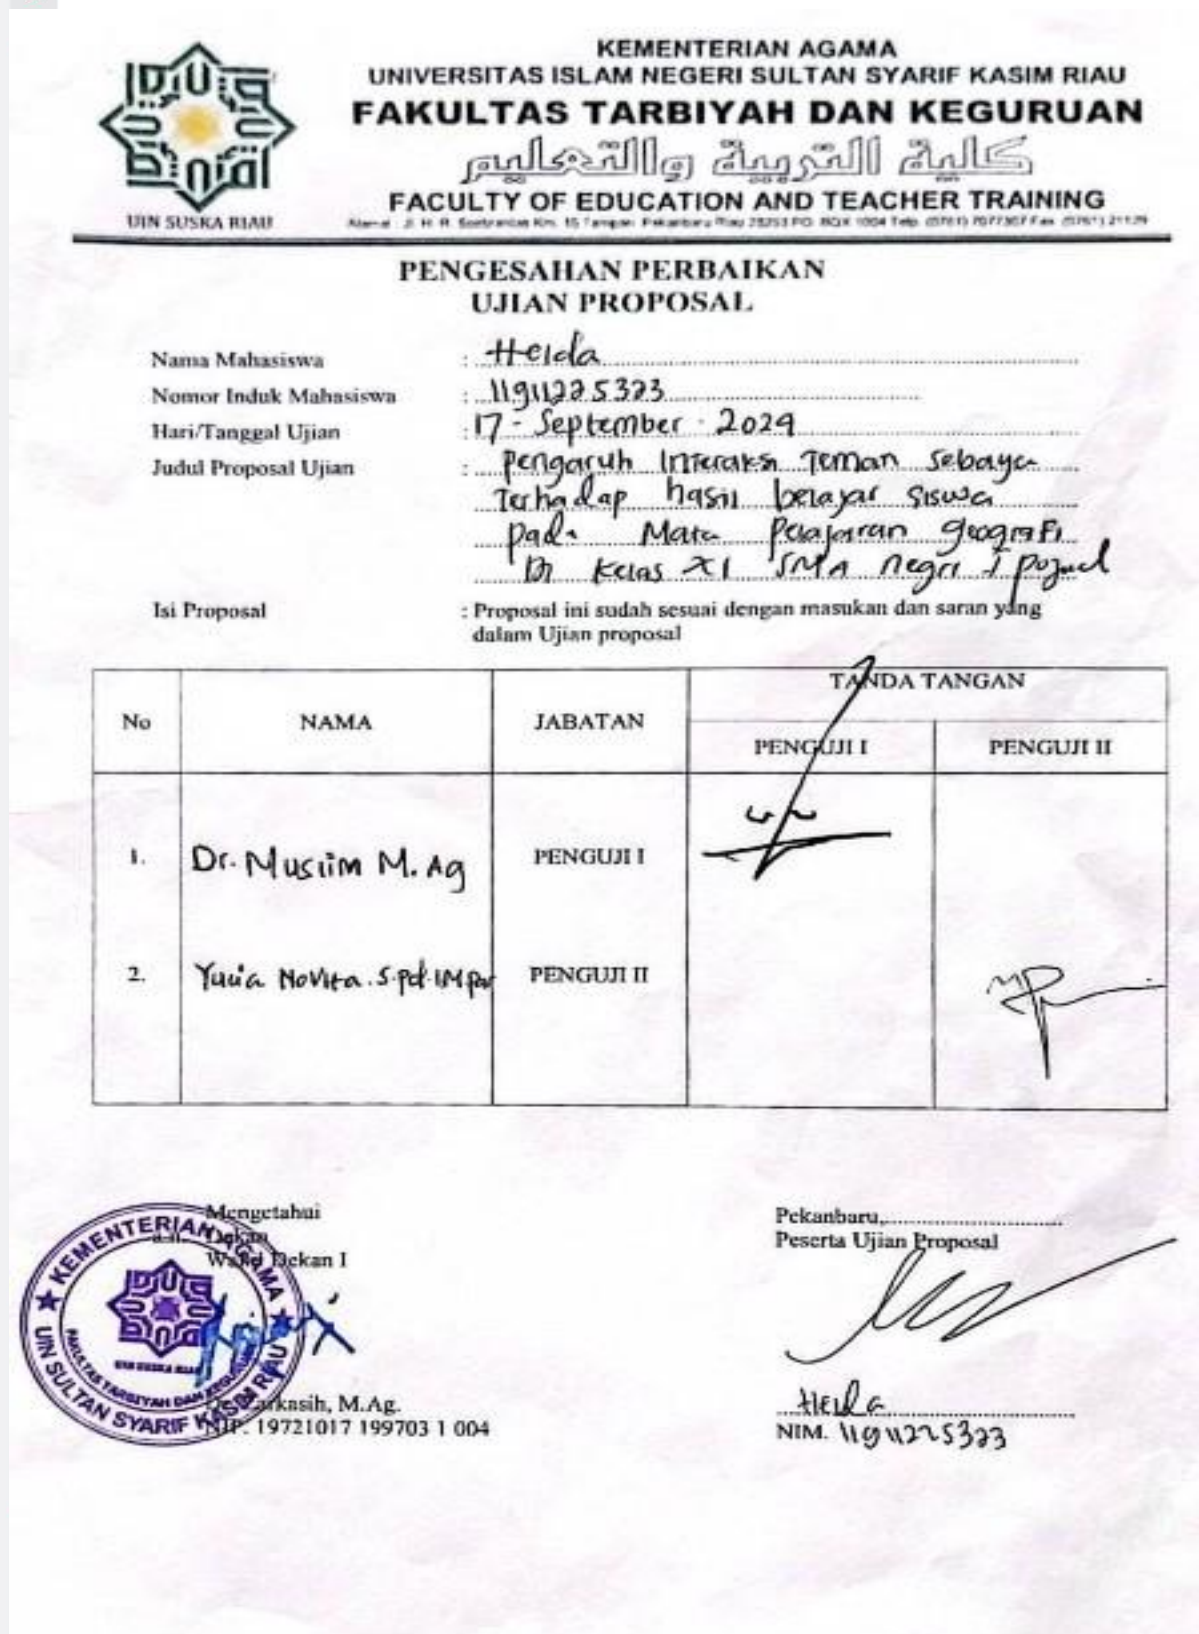 KEMENTERIAN AGAMA
UNIVERSITAS ISLAM NEGERI SULTAN SYARIF KASIM RIAU
FAKULTAS TARBIYAH DAN KEGURUAN
كلية التربية والتعليم
FACULTY OF EDUCATION AND TEACHER TRAINING
UIN SUSKA RIAU
PENGESAHAN PERBAIKAN
UJIAN PROPOSAL
Nama Mahasiswa : Helda
Nomor Induk Mahasiswa : 11911225323
Hari/Tanggal Ujian : 17 - September - 2024
Judul Proposal Ujian : Pengaruh Interaksi Teman Sebaya
Terhadap hasil belajar siswa
pada Mata Pelajaran geografi
Di Kelas XI SMA negri 1 pujud
Isi Proposal : Proposal ini sudah sesuai dengan masukan dan saran yang
dalam Ujian proposal
No NAMA JABATAN TANDA TANGAN
PENGUJI I PENGUJI II
1. Dr. Muslim M. Ag PENGUJI I
2. Yulia Novita. S.Pd.I M.Par PENGUJI II
Mengetahui
a.n. Dekan
Wakil Dekan I
KEMENTERIAN AGAMA
UIN SULTAN SYARIF KASIM RIAU
FAKULTAS TARBIYAH DAN KEGURUAN
UIN SUSKA RIAU
arkasih, M.Ag.
NIP. 19721017 199703 1 004
Pekanbaru,
Peserta Ujian Proposal
Helda
NIM. 11911225323